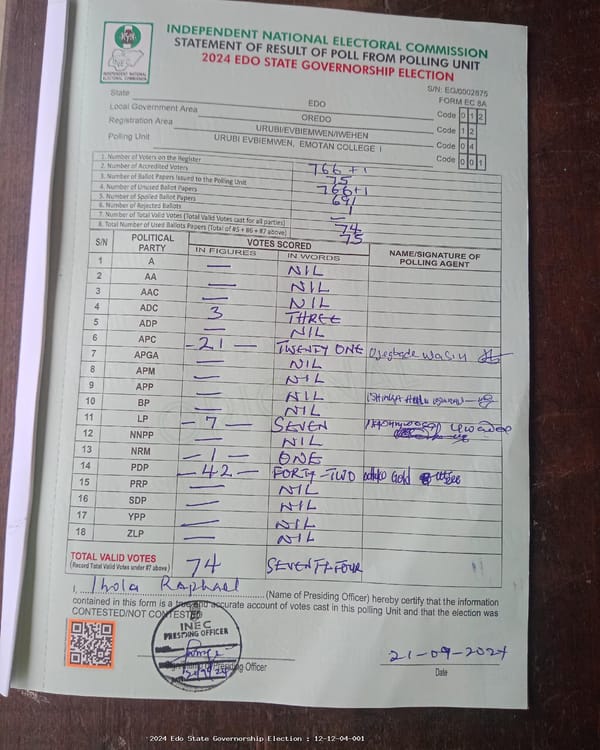 INDEPENDENT NATIONAL ELECTORAL COMMISSION
STATEMENT OF RESULT OF POLL FROM POLLING UNIT
2024 EDO STATE GOVERNORSHIP ELECTION
INEC
INDEPENDENT NATIONAL ELECTORAL COMMISSION
S/N: EG/0002875
FORM EC 8A
State EDO Code 0 1 2
Local Government Area OREDO Code 1 2
Registration Area URUBI/EVBIEMWEN/IWEHEN Code 0 4
Polling Unit URUBI EVBIEMWEN, EMOTAN COLLEGE I Code 0 0 1
1. Number of Voters on the Register 766+1
2. Number of Accredited Voters 75
3. Number of Ballot Papers Issued to the Polling Unit 766+1
4. Number of Unused Ballot Papers 691
5. Number of Spoiled Ballot Papers 1
6. Number of Rejected Ballots —
7. Number of Total Valid Votes (Total Valid Votes cast for all parties) 74
8. Total Number of Used Ballots Papers (Total of #5 + #6 + #7 above) 75
S/N POLITICAL PARTY VOTES SCORED NAME/SIGNATURE OF POLLING AGENT
IN FIGURES IN WORDS
1 A — NIL
2 AA — NIL
3 AAC — NIL
4 ADC 3 THREE
5 ADP — NIL
6 APC -21- TWENTY ONE
7 APGA — NIL
8 APM — NIL
9 APP — NIL
10 BP — NIL
11 LP -7- SEVEN
12 NNPP — NIL
13 NRM -1- ONE
14 PDP -42- FORTY-TWO Gold
15 PRP — NIL
16 SDP — NIL
17 YPP — NIL
18 ZLP — NIL
TOTAL VALID VOTES 74 SEVENTY FOUR
(Record Total Valid Votes under #7 above)
I, Ihola Raphael (Name of Presiding Officer) hereby certify that the information
contained in this form is a true and accurate account of votes cast in this polling Unit and that the election was
CONTESTED/NOT CONTESTED
INEC
PRESIDING OFFICER
21-09-2024
Signature of Presiding Officer Date
2024 Edo State Governorship Election : 12-12-04-001